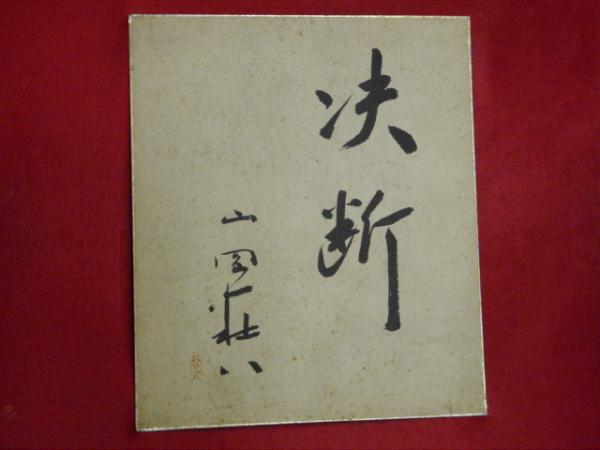 决断
山岡荘八